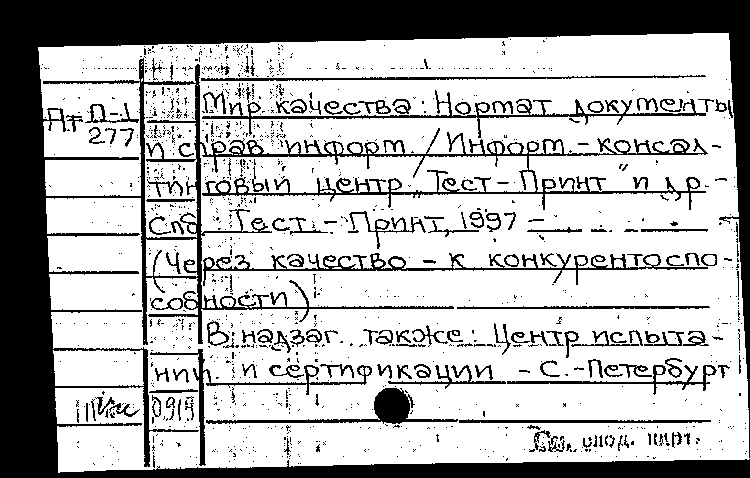 Мир качества: Нормат документы
П-1
277
и справ информ. / Информ.-консал-
тинговый центр "Тест-Принт" и др. -
Спб Тест.-Принт, 1997 -
(Через качество - к конкурентоспо-
собности)
В надзаг. также: Центр испыта-
ний и сертификации - С.-Петербург
0919
След. карт.